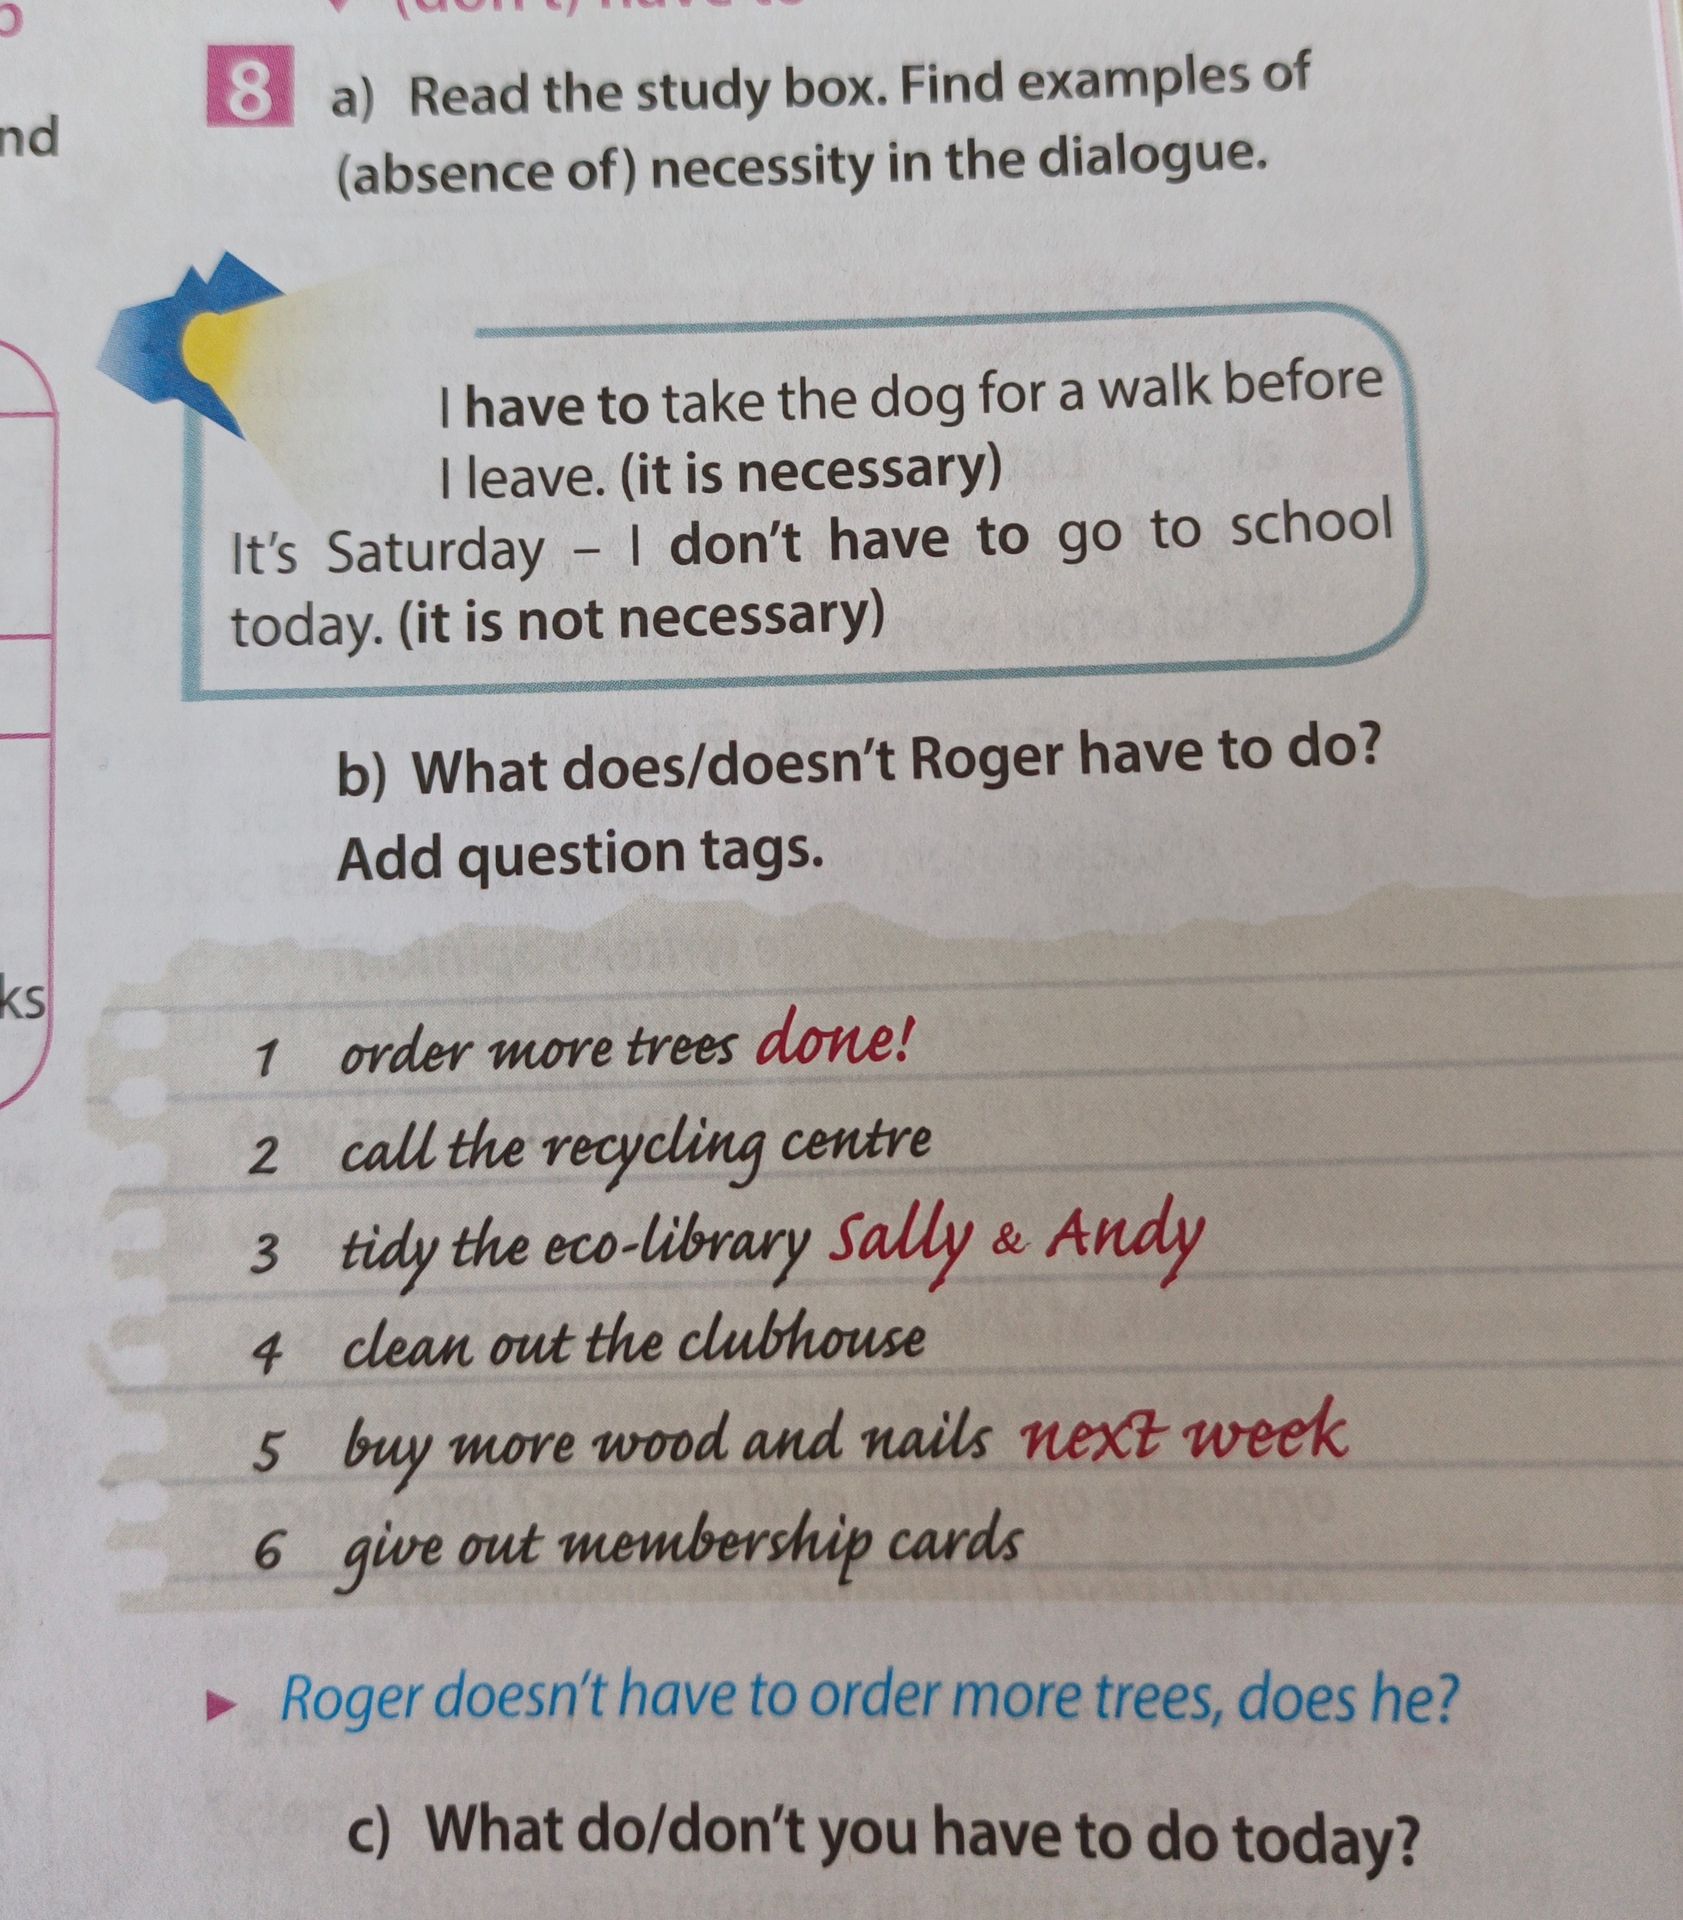 (don't) have to
8 a) Read the study box. Find examples of
(absence of) necessity in the dialogue.
I have to take the dog for a walk before
I leave. (it is necessary)
It's Saturday – I don't have to go to school
today. (it is not necessary)
b) What does/doesn't Roger have to do?
Add question tags.
1 order more trees done!
2 call the recycling centre
3 tidy the eco-library Sally & Andy
4 clean out the clubhouse
5 buy more wood and nails next week
6 give out membership cards
Roger doesn't have to order more trees, does he?
c) What do/don't you have to do today?